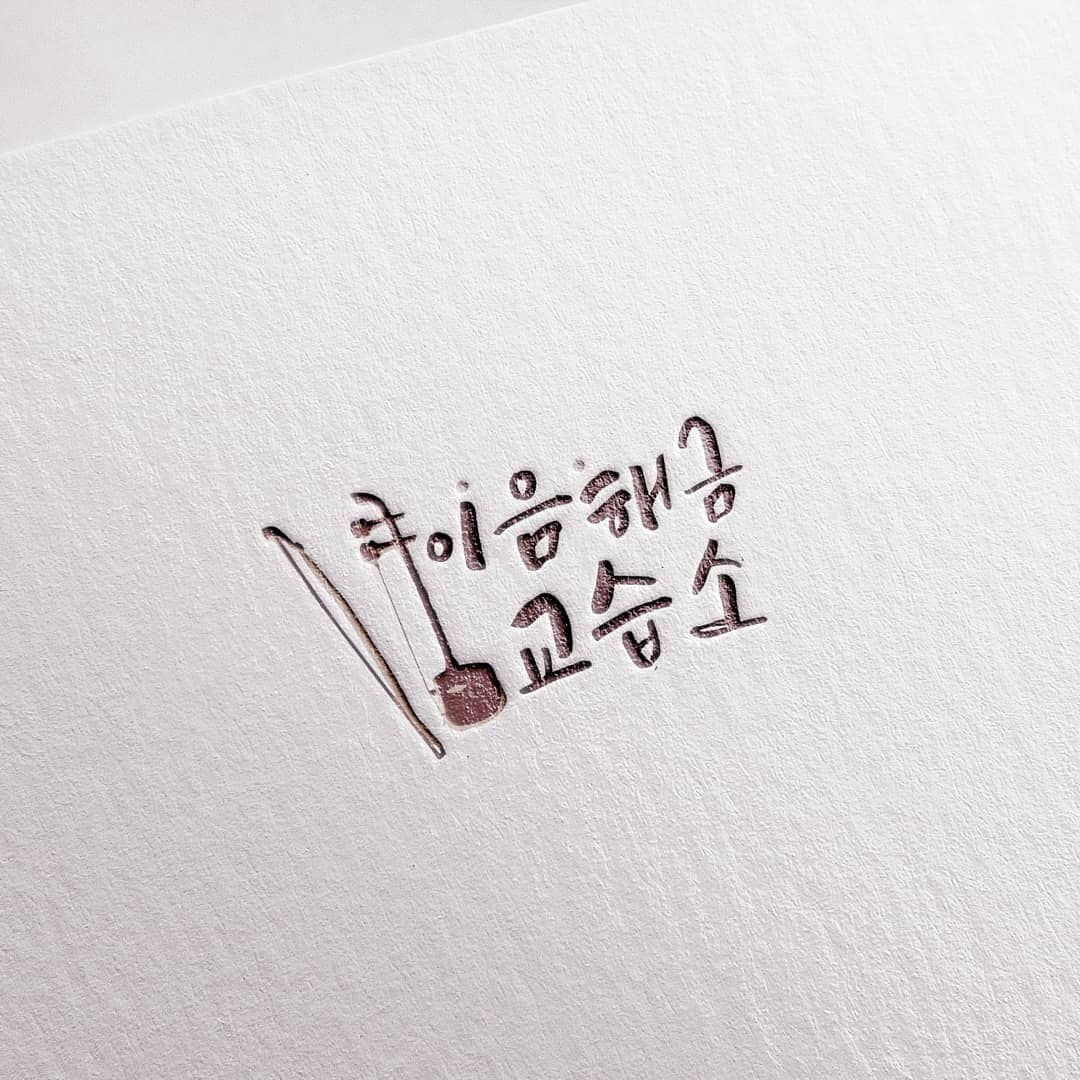 이음해금
교습소